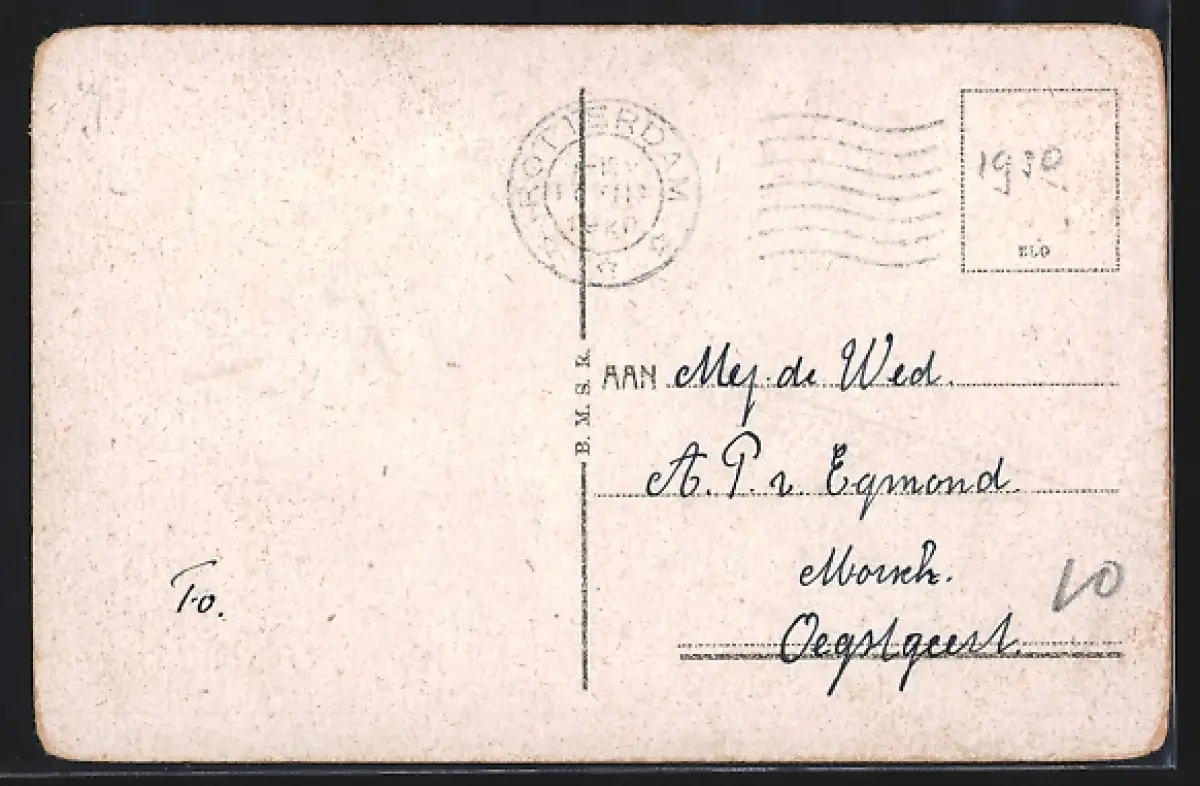 ROTTERDAM
1930
ELO
B. M. S. R.
AAN Mej. de Wed.
A. P. v. Egmond.
Morsch.
Oegstgeest.
To.
10